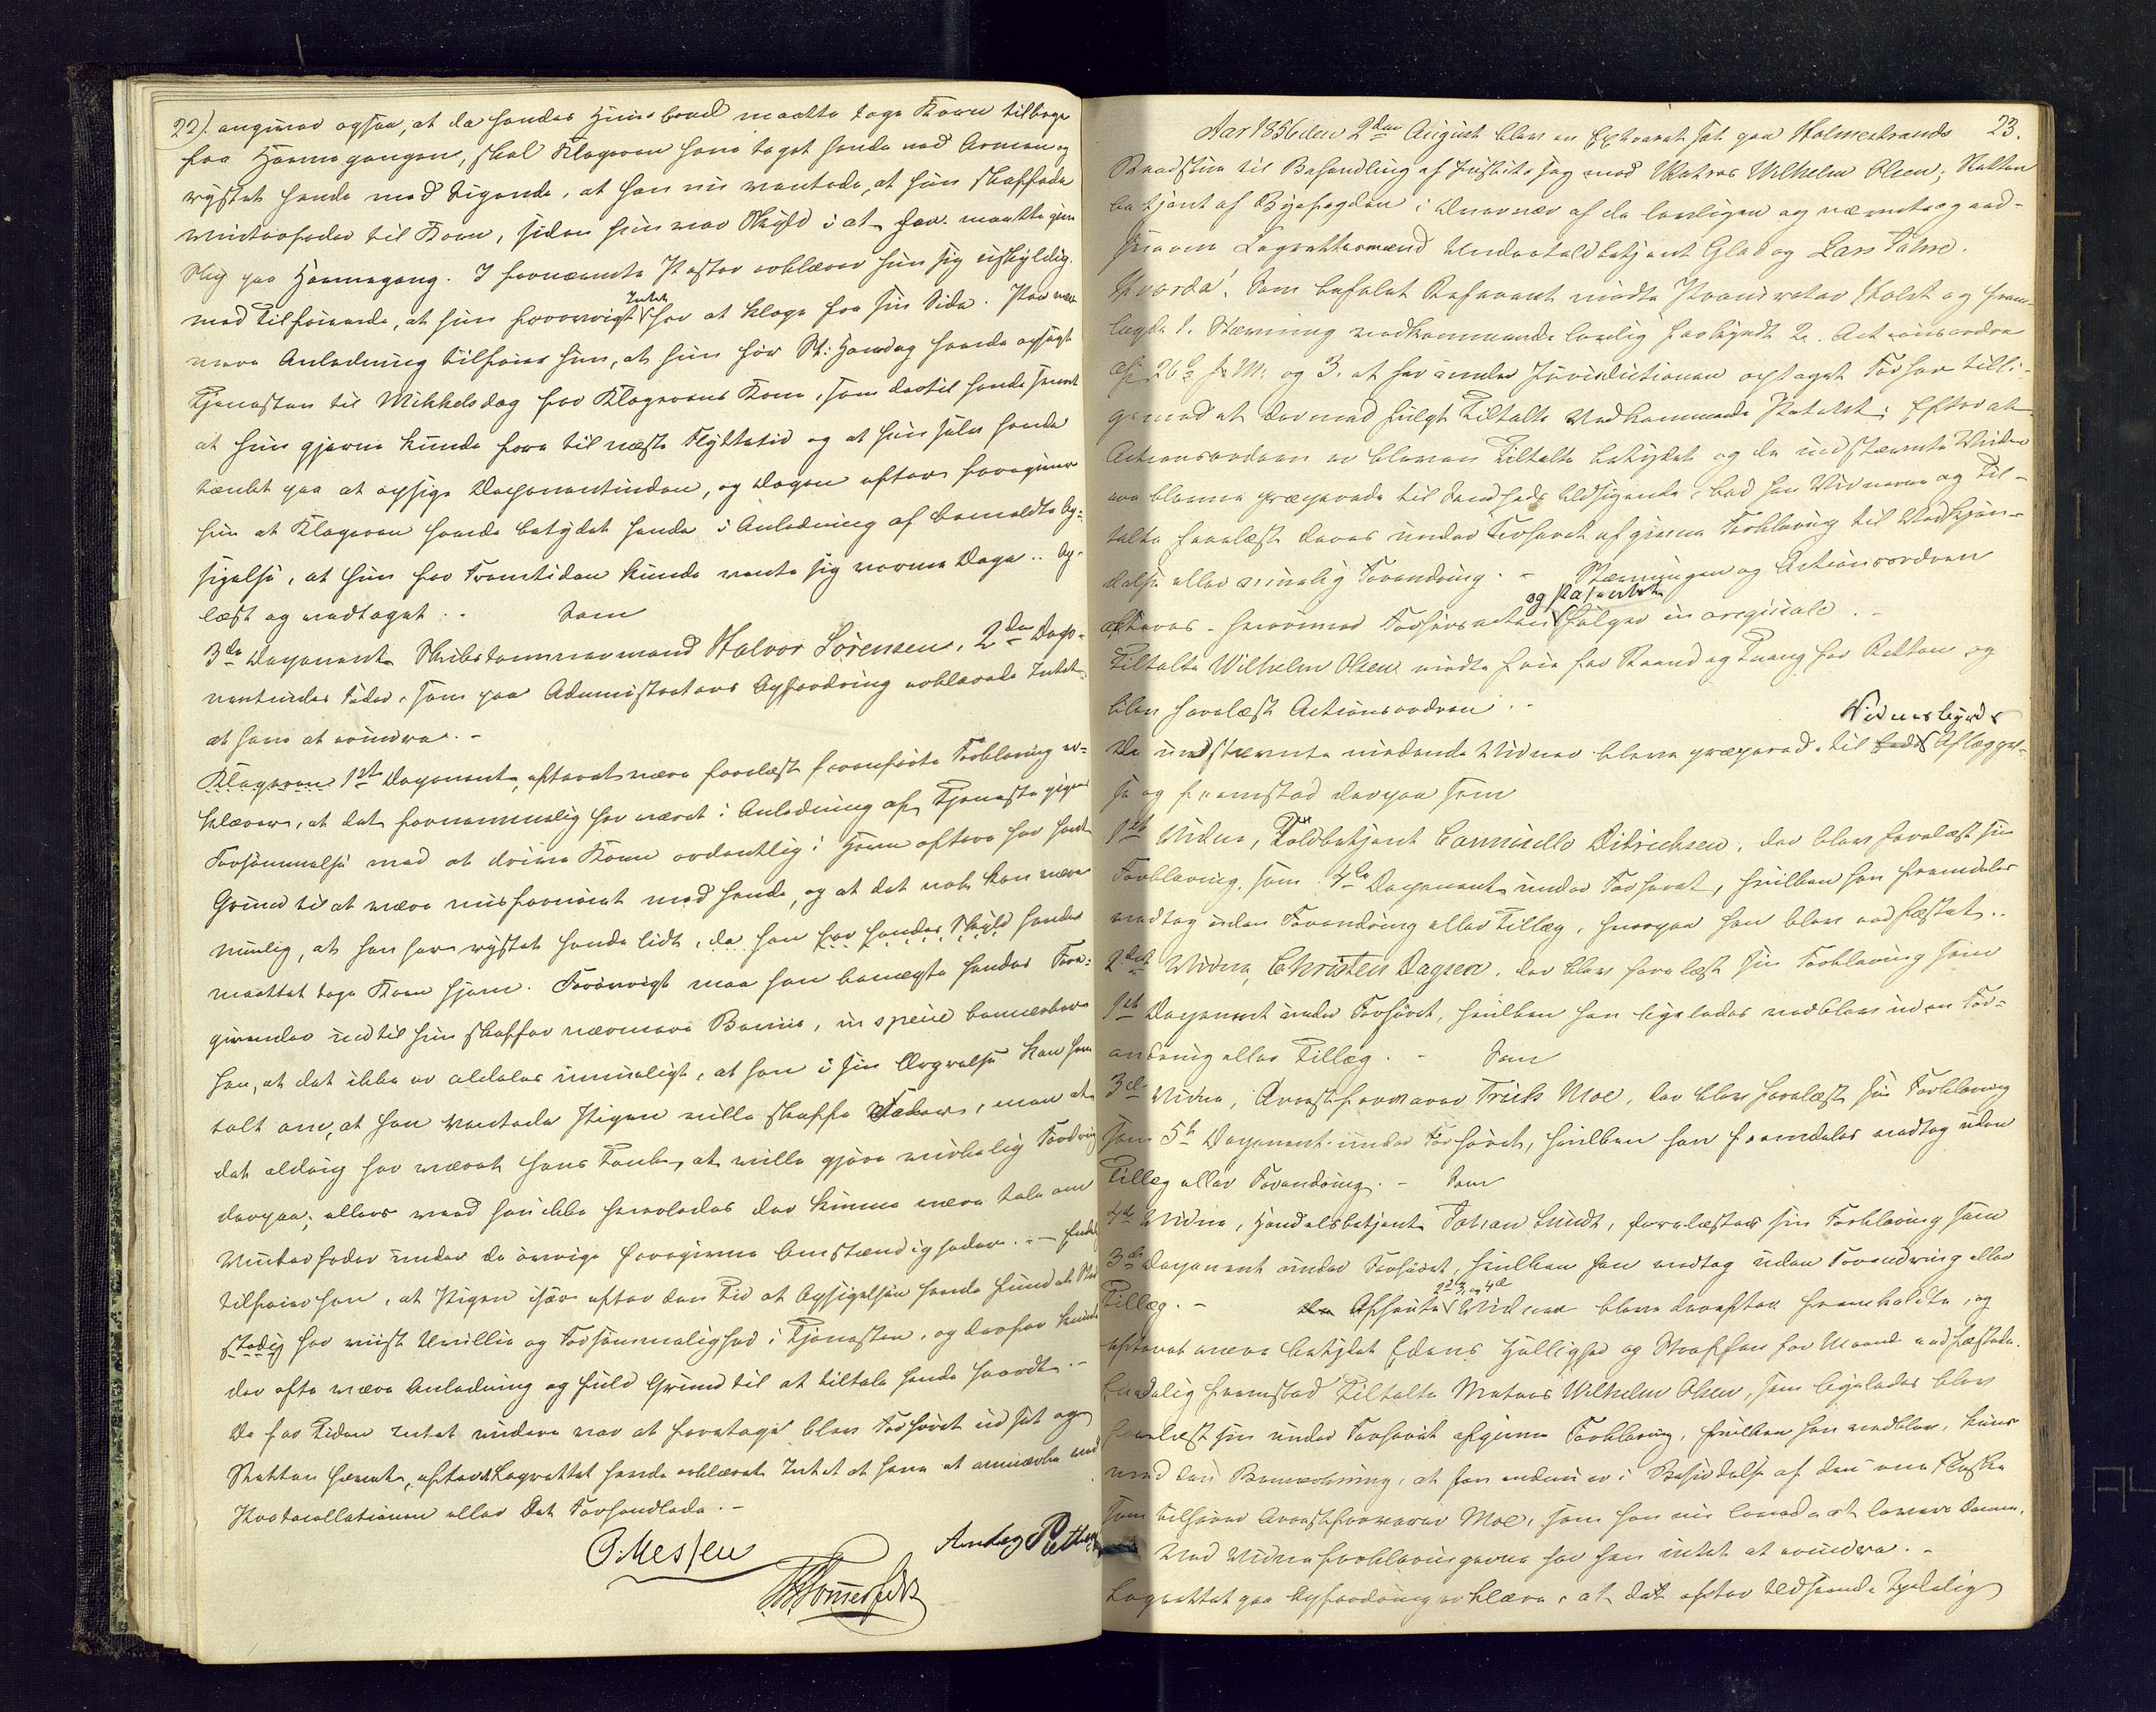 22). angiver ogsaa, at da hendes Huusbond maatte tage Koen tilbage
fra Havnegangen, skal Klageren have taget hende ved Armen og
rystet hende med Sigende, at han nu ventede, at hun skaffede
Vinterfoder til Koen, siden hun var Skyld i at han maatte give
Slip paa Havnegang. I fornævnte Poster erklærer hun sig uskyldig
med Tilføiende, at hun forøvrigt Intet har at klage fra sin Side. Paa nær-
mere Anledning tilføier hun, at hun før St: Hansdag havde opsagt
Tjenesten til Mikkelsdag for Klagerens Kone, som dertil havde svaret
at hun gjerne kunde fare til næste Flyttetid og at hun selv havde
tænkt paa at opsige Deponentinden, og Dagen efter foregiver
hun at Klageren havde betydet hende i Anledning af bemeldte Op-
sigelse, at hun for Fremtiden kunde vente sig varme Dage. Op-
læst og vedtaget. Som
3die Deponent Skibstømmermand Halvor Sørensen, 2den Depo-
nentindes Fader, som paa Administrators Opfordring erklærede Intet
at have at erindre. -
Klageren 1ste Deponent, efterat være forelæst fremførte Forklaring er-
klærer, at det fornemmelig har været i Anledning af Tjenestepigens
Forsømmelse med at drive Koen ordentlig i Havn oftere har havt
Grund til at være misfornøiet med hende, og at det nok kan være
muelig, at han har rystet hende lidt, da han for hendes Skyld havde
maattet tage Koen hjem. Forøvrigt maa han benægte hendes Fore-
givender indtil hun skaffer nærmere Beviis, in specie bemærker
han, at det ikke er aldeles umueligt, at han i sin Ærgrelse kan have
talt om, at han ventede Pigen ville skaffe Foder, men at
det aldrig har været hans Tanke, at ville gjøre virkelig Fordring
derpaa; ellers veed han ikke hvorledes der kunne være Tale om
Vinterfoder under de øvrige foregivne Omstændigheder. - Endelig
tilføier han, at Pigen især efter den Tid at Opsigelsen havde fundet Sted
stedig har viist Uvillie og Forsømmelighed i Tjenesten, og derfor kunde
der ofte være Anledning og fuld Grund til at tiltale hende haardt. -
Da for Tiden Intet videre var at foretage blev Forhøret udsat og
Retten hævet, efterat Lagrettet havde erklæret Intet at have at anmærke ved
Protocollationen eller det Forhandlede. -
O. Messen
Aar 1856 den 2den August blev en Extraret sat paa Holmestrands 23.
Raadstue til Behandling af Justits-Sag mod Matros Wilhelm Olsen; Retten
betjent af Byefogden i Overvær af de lovligen og nævntogaed-
svorne Lagrettesmænd Undertoldbetjent Glad og Lars
Hvorda! Som befalet Referent mødte Procurator Holst og frem-
lagde 1. Stævning vedkommende lovlig forkyndt 2. Actionsordre
af 26de f: M: og 3. et her under Jurisdictionen optaget Forhør tilli-
gemed et dermed fulgt Tiltalte vedkommende Pasattest. Efterat
Actionsordren er bleven Tiltalte betydet og de indstævnte Vidner
vare blevne præparerede til Sandheds Udsigende, bad han Vidnerne og Til-
talte forelæst deres under Forhøret afgivne Forklaring til Vedkjen-
delse eller muelig Forandring. - Stævningen og Actionsordren
acteres - hvorimod Forhørsacten og Pasattesten følger in originale. -
Tiltalte Wilhelm Olsen mødte fri for Baand og Tvang for Retten og
blev forelæst Actionsordren. -
De indstævnte mødende Vidner bleve præpareret til Vidnesbyrds Aflæggel-
se og fremstod derpaa som
1ste Vidne, Toldbetjent Camillo Ditrichsen, der blev forelæst sin
Forklaring, som 4de Deponent under Forhøret, hvilken han fremdeles
vedtog uden Forandring eller Tillæg, hvorpaa han blev edfæstet.
2det Vidne, Christen Dagsen, der blev forelæst sin Forklaring som
1ste Deponent under Forhøret, hvilken han ligeledes vedblev uden For-
andring eller Tillæg. - Som
3die Vidne, Arrestforvarer Truls Moe, der blev forelæst sin Forklaring
som 5te Deponent under Forhøret, hvilken han fremdeles vedtog uden
Tillæg eller Forandring. - Som
4de Vidne, Handelsbetjent Johan Lundt, forelæstes sin Forklaring som
3die Deponent under Forhøret, hvilken han vedtog uden Forandring eller
Tillæg. - Afhørte 2de 3die og 4de Vidner bleve derefter fremkaldte, og
efterat være betydet Edens Hellighed og Straffen for Meened edfæstede.
Endelig fremstod Tiltalte Matros Wilhelm Olsen, som ligeledes blev
forelæst sin under Forhøret afgivne Forklaring, hvilken han vedblev, kun
med den Bemærkning, at han endnu er i Besiddelse af den ene Flaske
som tilhører Arrestforvarer Moe, som han nu lovede at levere denne.
Ved Vidneforklaringerne har han intet at erindre. -
Lagrettet paa Opfordring erklære, at det efter Udseende tydelig